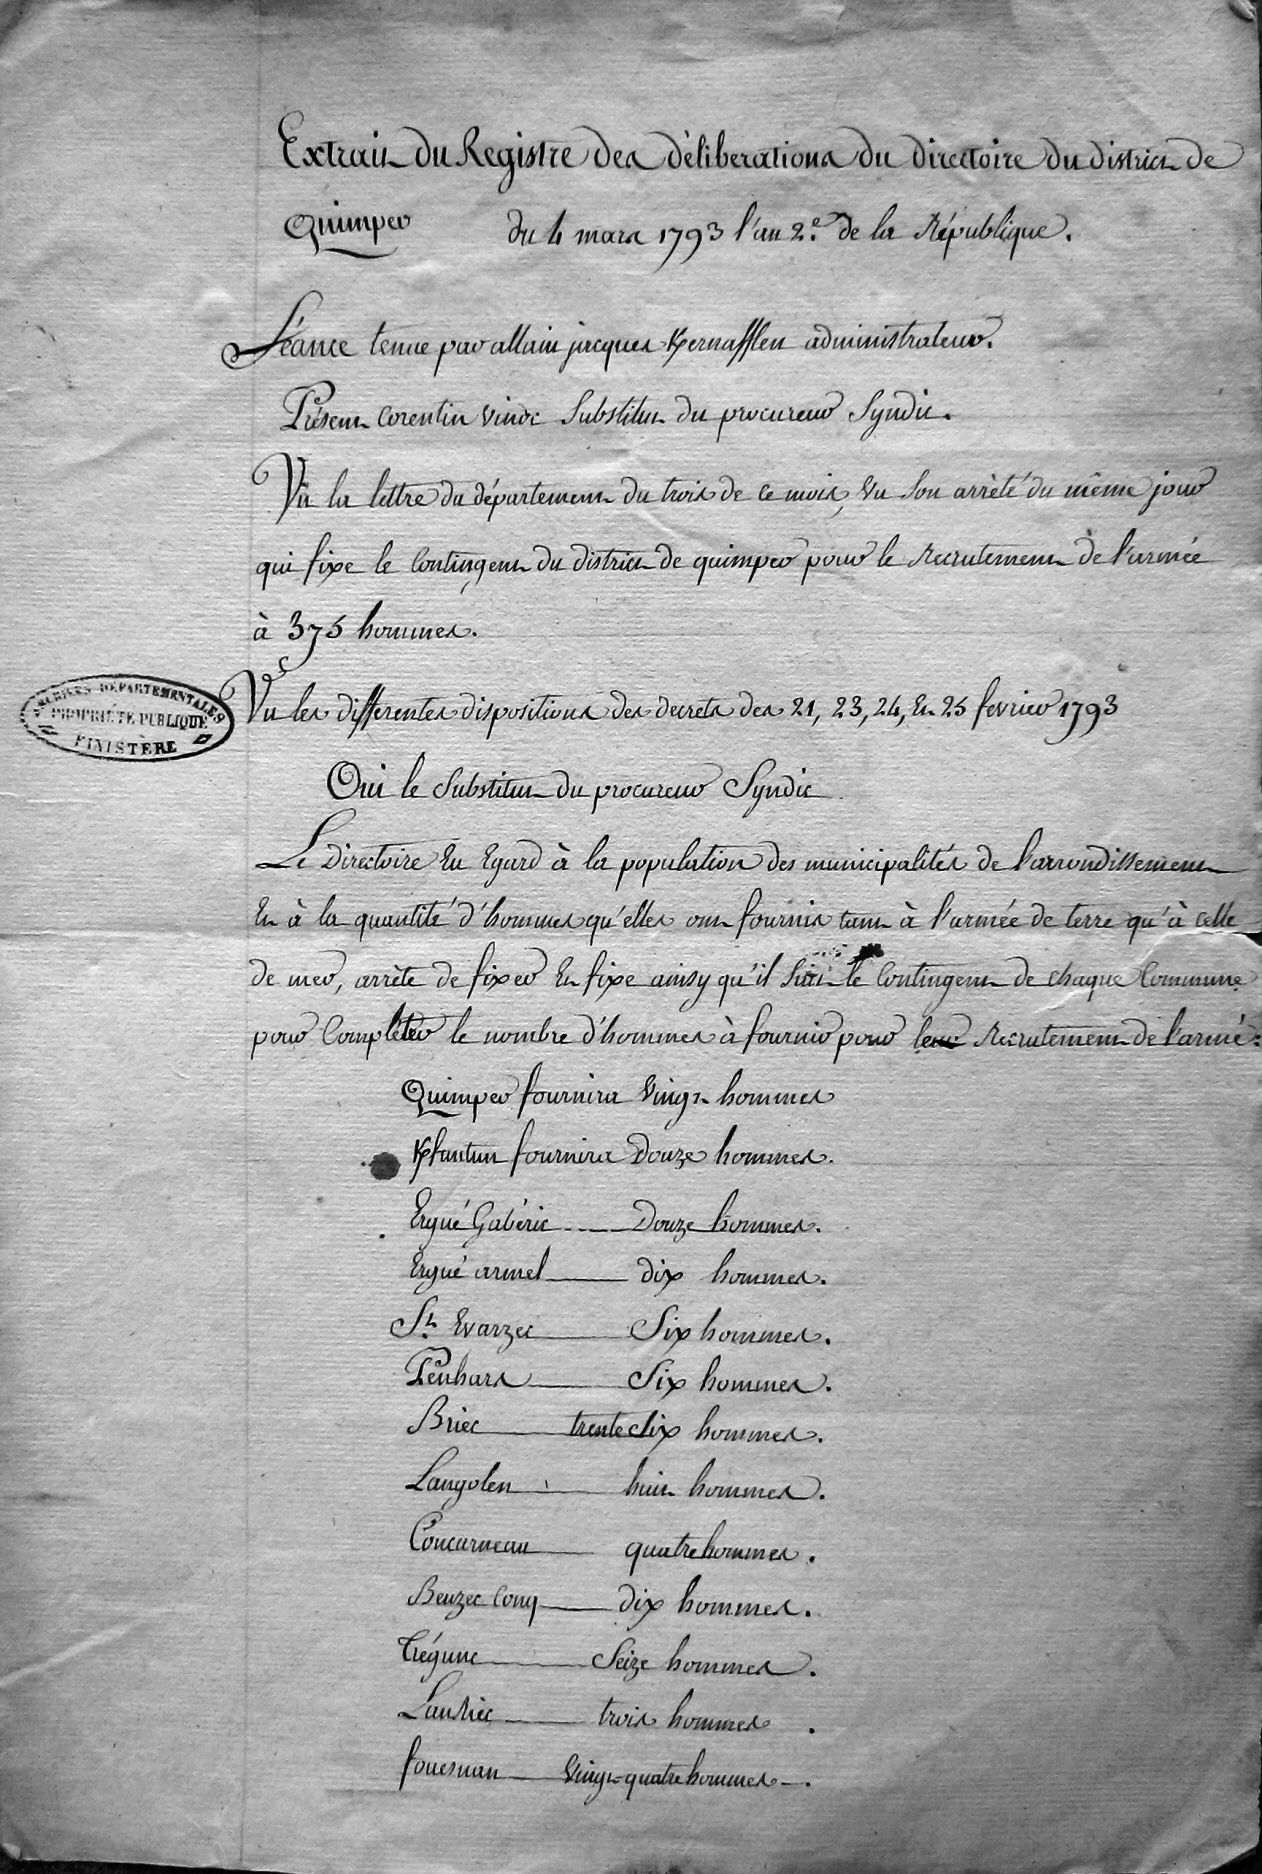 Extrait du Registre des déliberations du directoire du district de
Quimper du 4 mars 1793 l'an 2e. de la République.
Séance tenue par allain jacques Kernafflen administrateur.
Présent Corentin vinoc Substitut du procureur Syndic.
Vû la lettre du département du trois de ce mois, Vu Son arrêté du même jour
qui fixe le Contingent du district de quimper pour le recrutement de l'armée
à 375 hommes.
ARCHIVES DÉPARTEMENTALES
PROPRIÉTÉ PUBLIQUE
FINISTÈRE
Vu les differentes dispositions des decrets des 21, 23, 24, Et 25 fevrier 1793
Oui le Substitut du procureur Syndic
Le Directoire Eu Egard à la population des municipalités de l'arrondissement
Et à la quantité d'hommes qu'elles ont fournis tant à l'armée de terre qu'à celle
de mer, arrête de fixer Et fixe ainsy qu'il Suit le Contingent de chaque Commune
pour Completer le nombre d'hommes à fournir pour leur Recrutement de l'armée:
Quimper fournira Vingt hommes
Kfantun fournira Douze hommes.
Ergué Gabéric Douze hommes.
Ergué armel dix hommes.
St. Evarzec Six hommes.
Penhars Six hommes.
Briec trente Six hommes.
Langolen huit hommes.
Concarneau quatre hommes.
Beuzec Conq dix hommes.
Trégunc Seize hommes.
Lanriec trois hommes.
fouesnan Vingt quatre hommes.